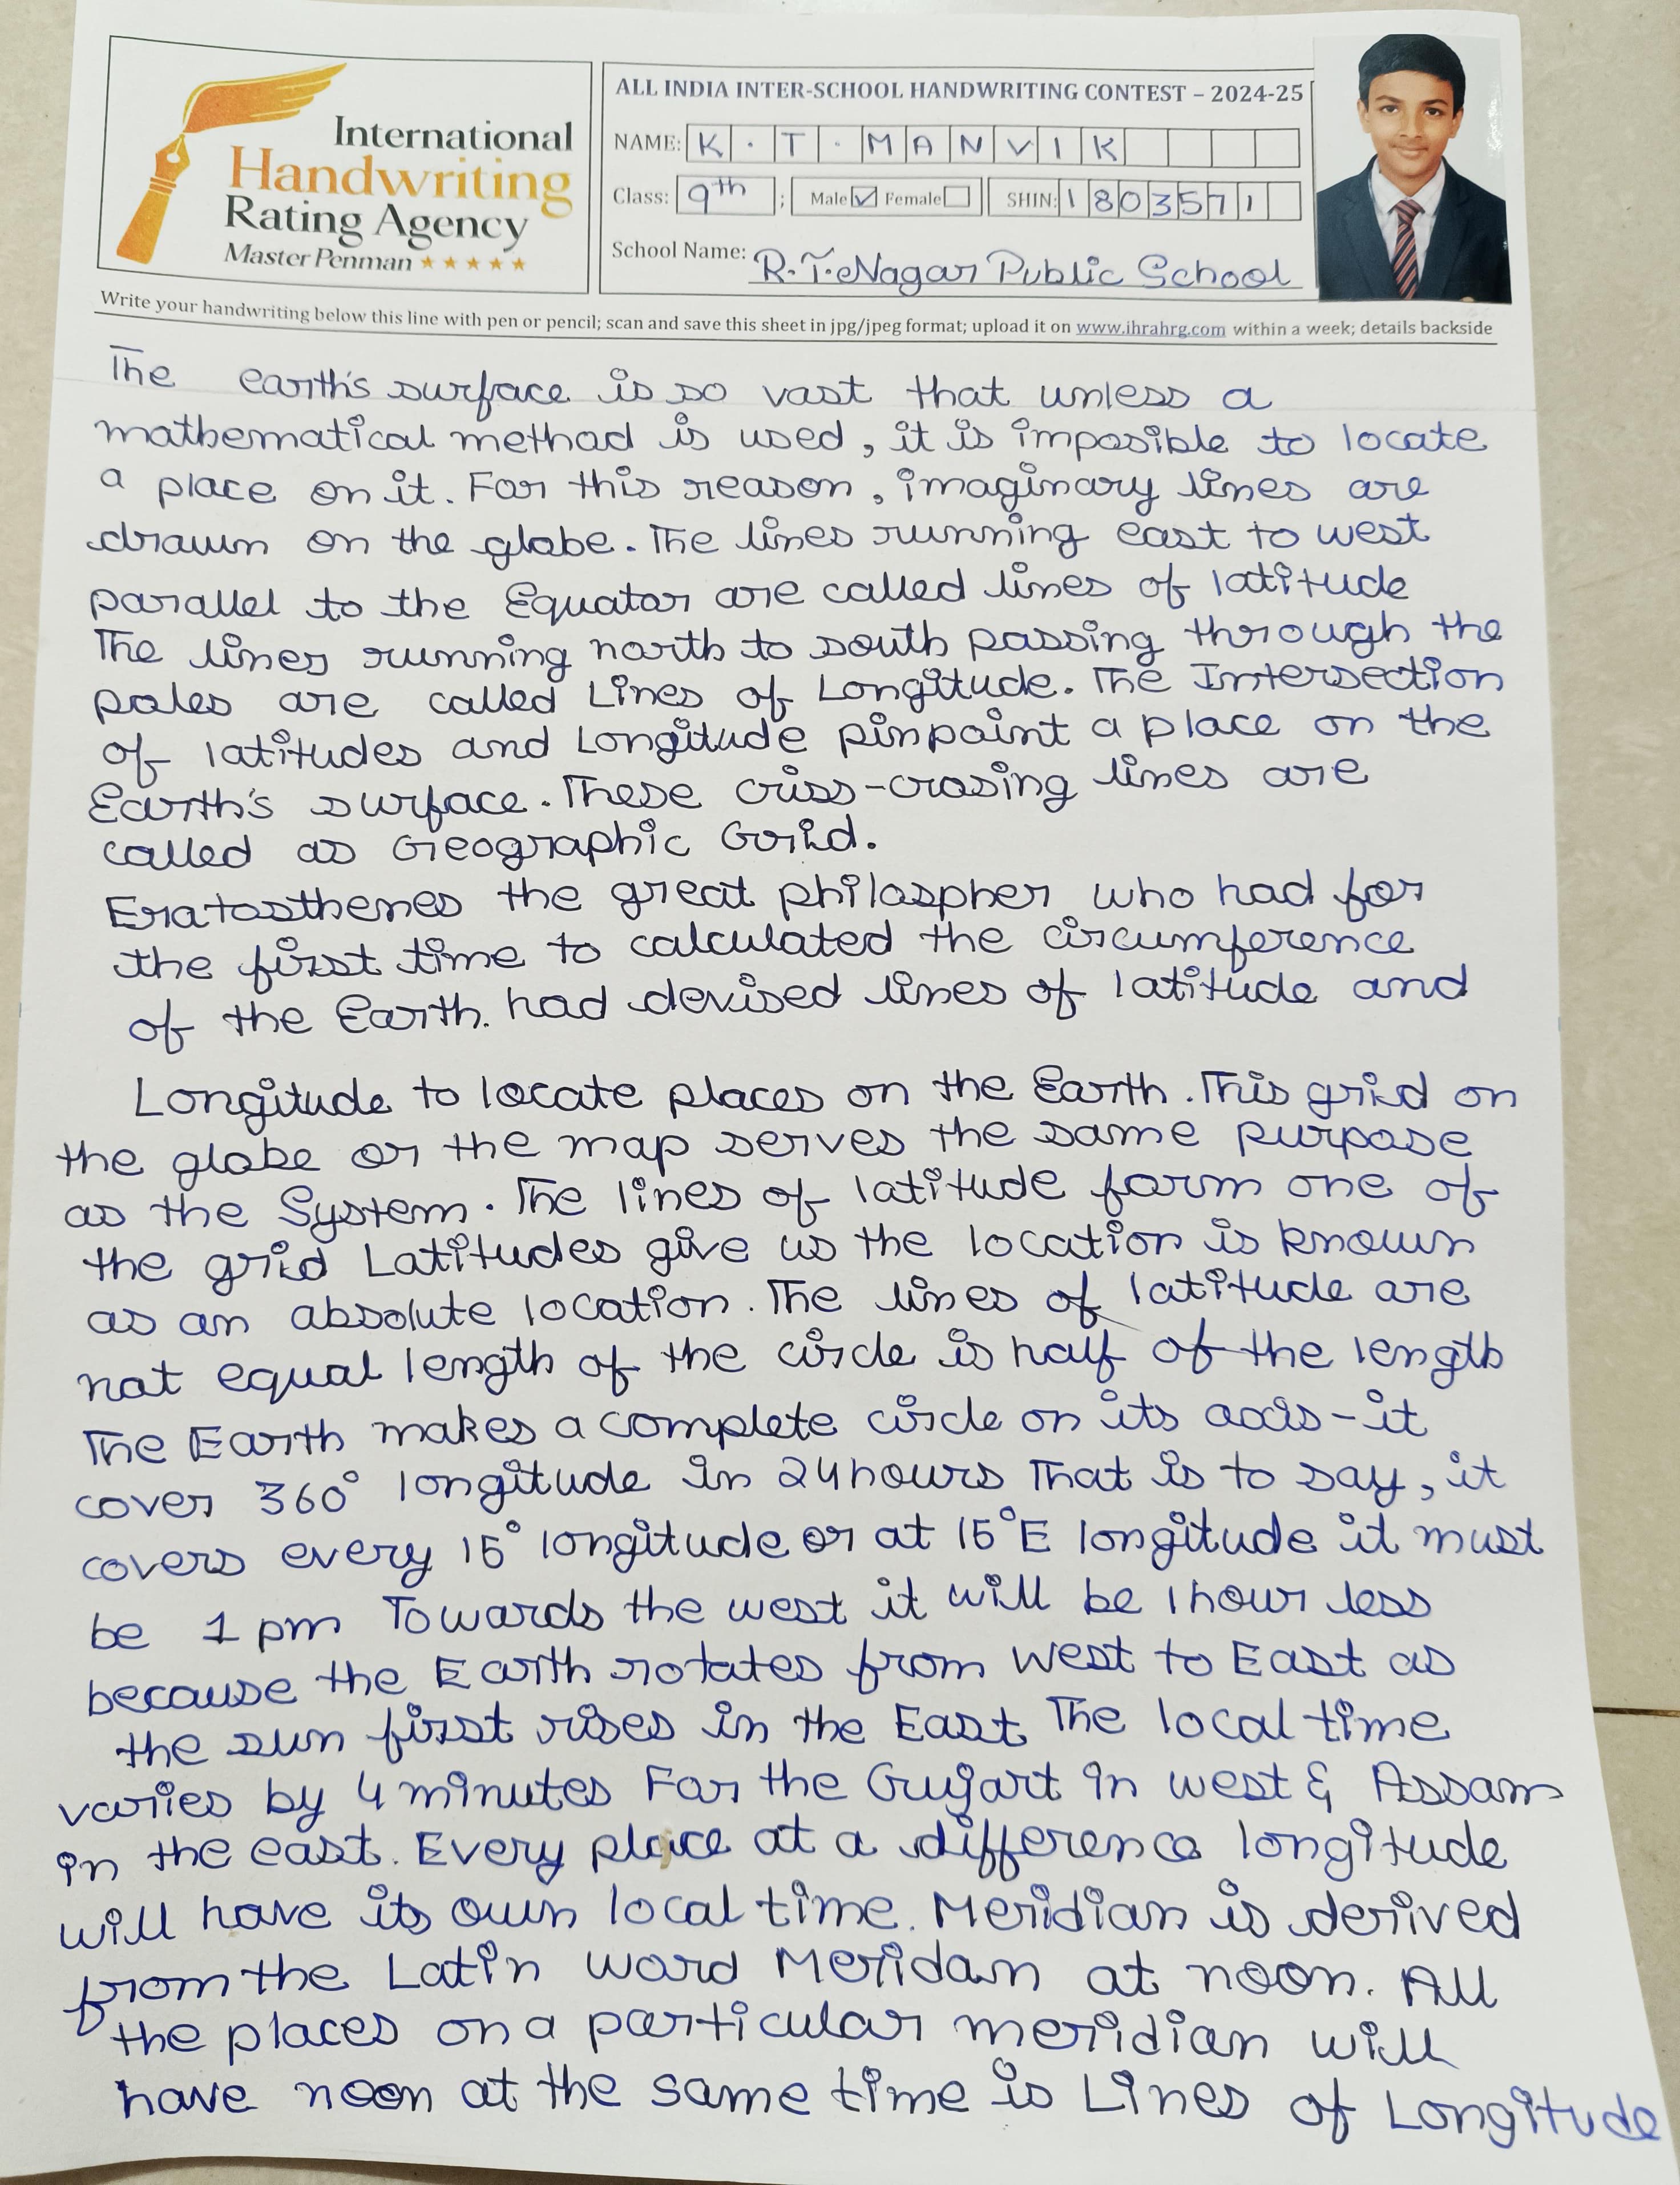 International
Handwriting
Rating Agency
Master Penman ★★★★★
ALL INDIA INTER-SCHOOL HANDWRITING CONTEST – 2024-25
NAME: K . T . MANVIK
Class: 9th ; Male ☑ Female ☐ SHIN: 1803571
School Name: R.T.Nagar Public School
Write your handwriting below this line with pen or pencil; scan and save this sheet in jpg/jpeg format; upload it on www.ihrahrg.com within a week; details backside
The earth's surface is so vast that unless a
mathematical method is used, it is imposible to locate
a place on it. For this reason, imaginary lines are
drawn on the globe. The lines running east to west
parallel to the Equator are called lines of latitude
The lines running north to south passing through the
poles are called Lines of Longitude. The Intersection
of latitudes and Longitude pinpoint a place on the
Earth's surface. These criss-crosing lines are
called as Geographic Grid.
Eratosthenes the great philospher who had for
the first time to calculated the circumference
of the Earth. had devised lines of latitude and
Longitude to locate places on the Earth. This grid on
the globe or the map serves the same purpose
as the System. The lines of latitude form one of
the grid Latitudes give us the location is known
as an absolute location. The lines of latitude are
not equal length of the circle is half of the length
The Earth makes a complete circle on its axis-it
cover 360° longitude in 24 hours That is to say, it
covers every 15° longitude or at 15°E longitude it must
be 1 pm Towards the west it will be 1 hour less
because the Earth rotates from west to East as
the sun first rises in the East The local time
varies by 4 minutes For the Gujart in west & Assam
in the east. Every place at a difference longitude
will have its own local time. Meridian is derived
from the Latin word Meridam at noon. All
the places on a particular meridian will
have noon at the same time is Lines of Longitude